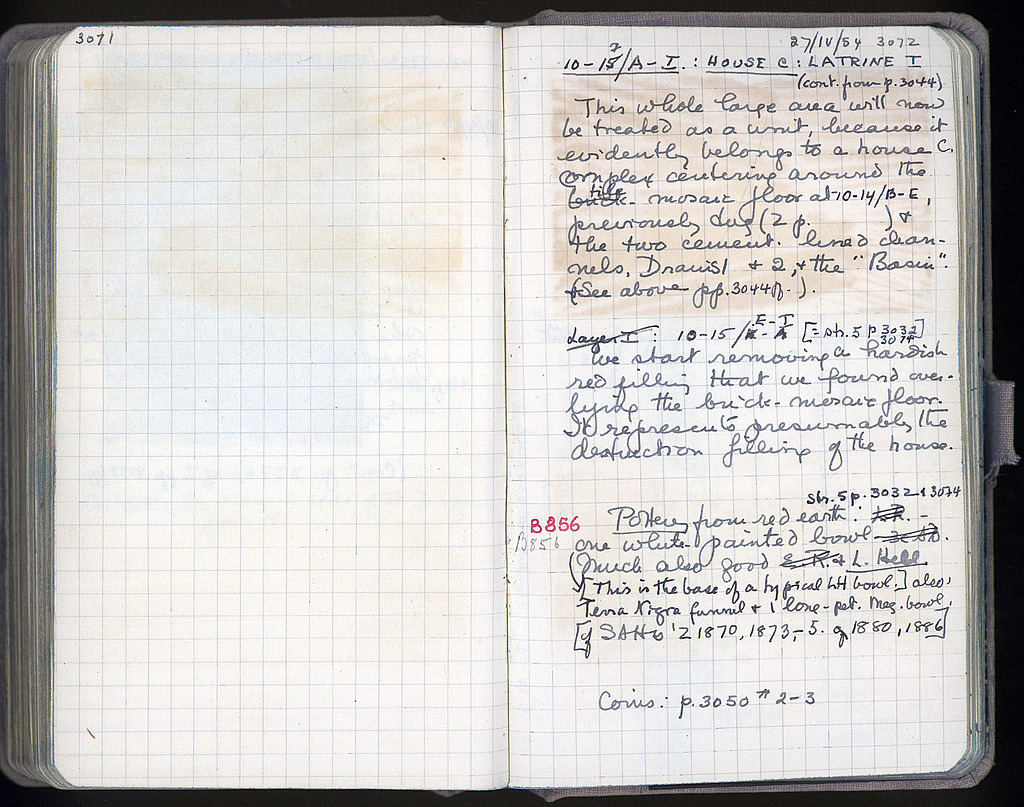 3071
27/IV/54 3072
10-15/A-I.: HOUSE C: LATRINE I
(cont. from p. 3044)
This whole large area will now
be treated as a unit, because it
evidently belongs to a house C.
complex centering around the
tile
brick- mosaic floor at 10-14/B-E,
previously dug (2 p. ) &
the two cement-lined chan-
nels, Drains 1 & 2, & the "Basin".
(See above pp. 3044ff- ).
E-I
Layer I: 10-15/ [= str. 5 p 3032]
3074
We start removing a hardish
red filling that we found over-
lying the brick-mosaic floor.
It represents presumably the
destruction filling of the house.
str. 5 p. 3032 & 3074
B856 Pottery from red earth: L.R. -
B856 one white-painted bowl
(much also good E.R. & L. Hell
[This is the base of a typical LH bowl.] also,
Terra Nigra funnel & 1 long-pet. Meg. bowl.
[cf SAHs 'Z 1870, 1873,-5. 1880, 1886]
Coins: p. 3050 # 2-3